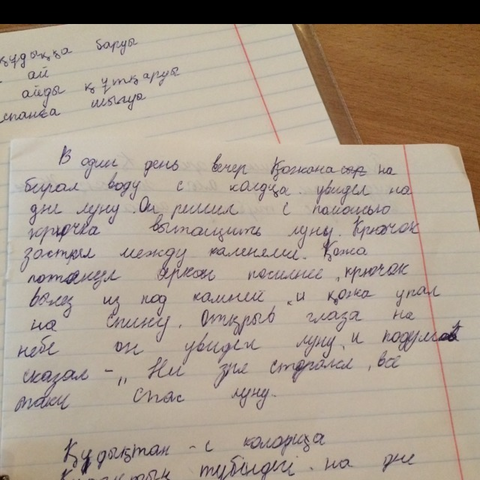 құдыққа баруы
ай
айды құтқаруы
аспанға шығуы
В один день вечер Қожана на
бирал воду с колдца увидел на
дне луну. Он решил с помощью
крючка вытащить луну. Крючок
застял между каменями. Кожа
потянул аркан посилнее, крючок
вылез из под камней, и кожа упал
на спину. Открыв глаза на
небе он увидел луну, и подумал
сказал - „Ни зря старался, все
таки спас луну.
Құдықтан - с колодца
түбіндегі - на дне